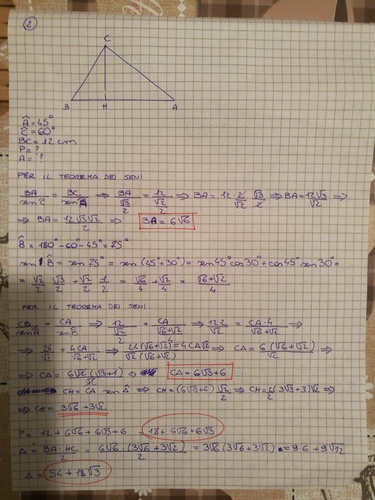 2
C
B H A
Â = 45°
Ĉ = 60°
BC = 12 cm
P = ?
A = ?
PER IL TEOREMA DEI SENI
BA/sen Ĉ = BC/sen Â ⇒ BA/(√3/2) = 12/(√2/2) ⇒ BA = 12·2/√2 · √3/2 ⇒ BA = 12√3/√2 ⇒
⇒ BA = 12√3√2/2 ⇒ BA = 6√6
B̂ = 180°-60-45° = 75°
sen B̂ = sen 75° = sen (45°+30°) = sen45°cos30°+cos45°sen30° =
= √2/2 √3/2 + √2/2 1/2 = √6/4 + √2/4 = (√6+√2)/4
PER IL TEOREMA DEI SENI
CB/sen Â = CA/sen B̂ ⇒ 12/(√2/2) = CA/((√6+√2)/4) ⇒ 12·2/√2 = CA·4/(√6+√2) ⇒
⇒ 24/√2 = 4CA/(√6+√2) ⇒ ⇒ CA = 6(√6+√2)/√2 ⇒
⇒ CA = 6√2(√3+1)/√2 ⇒ CA = 6√3+6
CH = CA sen Â ⇒ CH = (6√3+6) √2/2 ⇒ ⇒
⇒ CH = 3√6+3√2
P = 12+6√6+6√3+6 = 18+6√6+6√3
A = BA·HC/2 = 6√6 (3√6+3√2)/2 = 3√6(3√6+3√2) = 9·6+9√12
A = 54+18√3